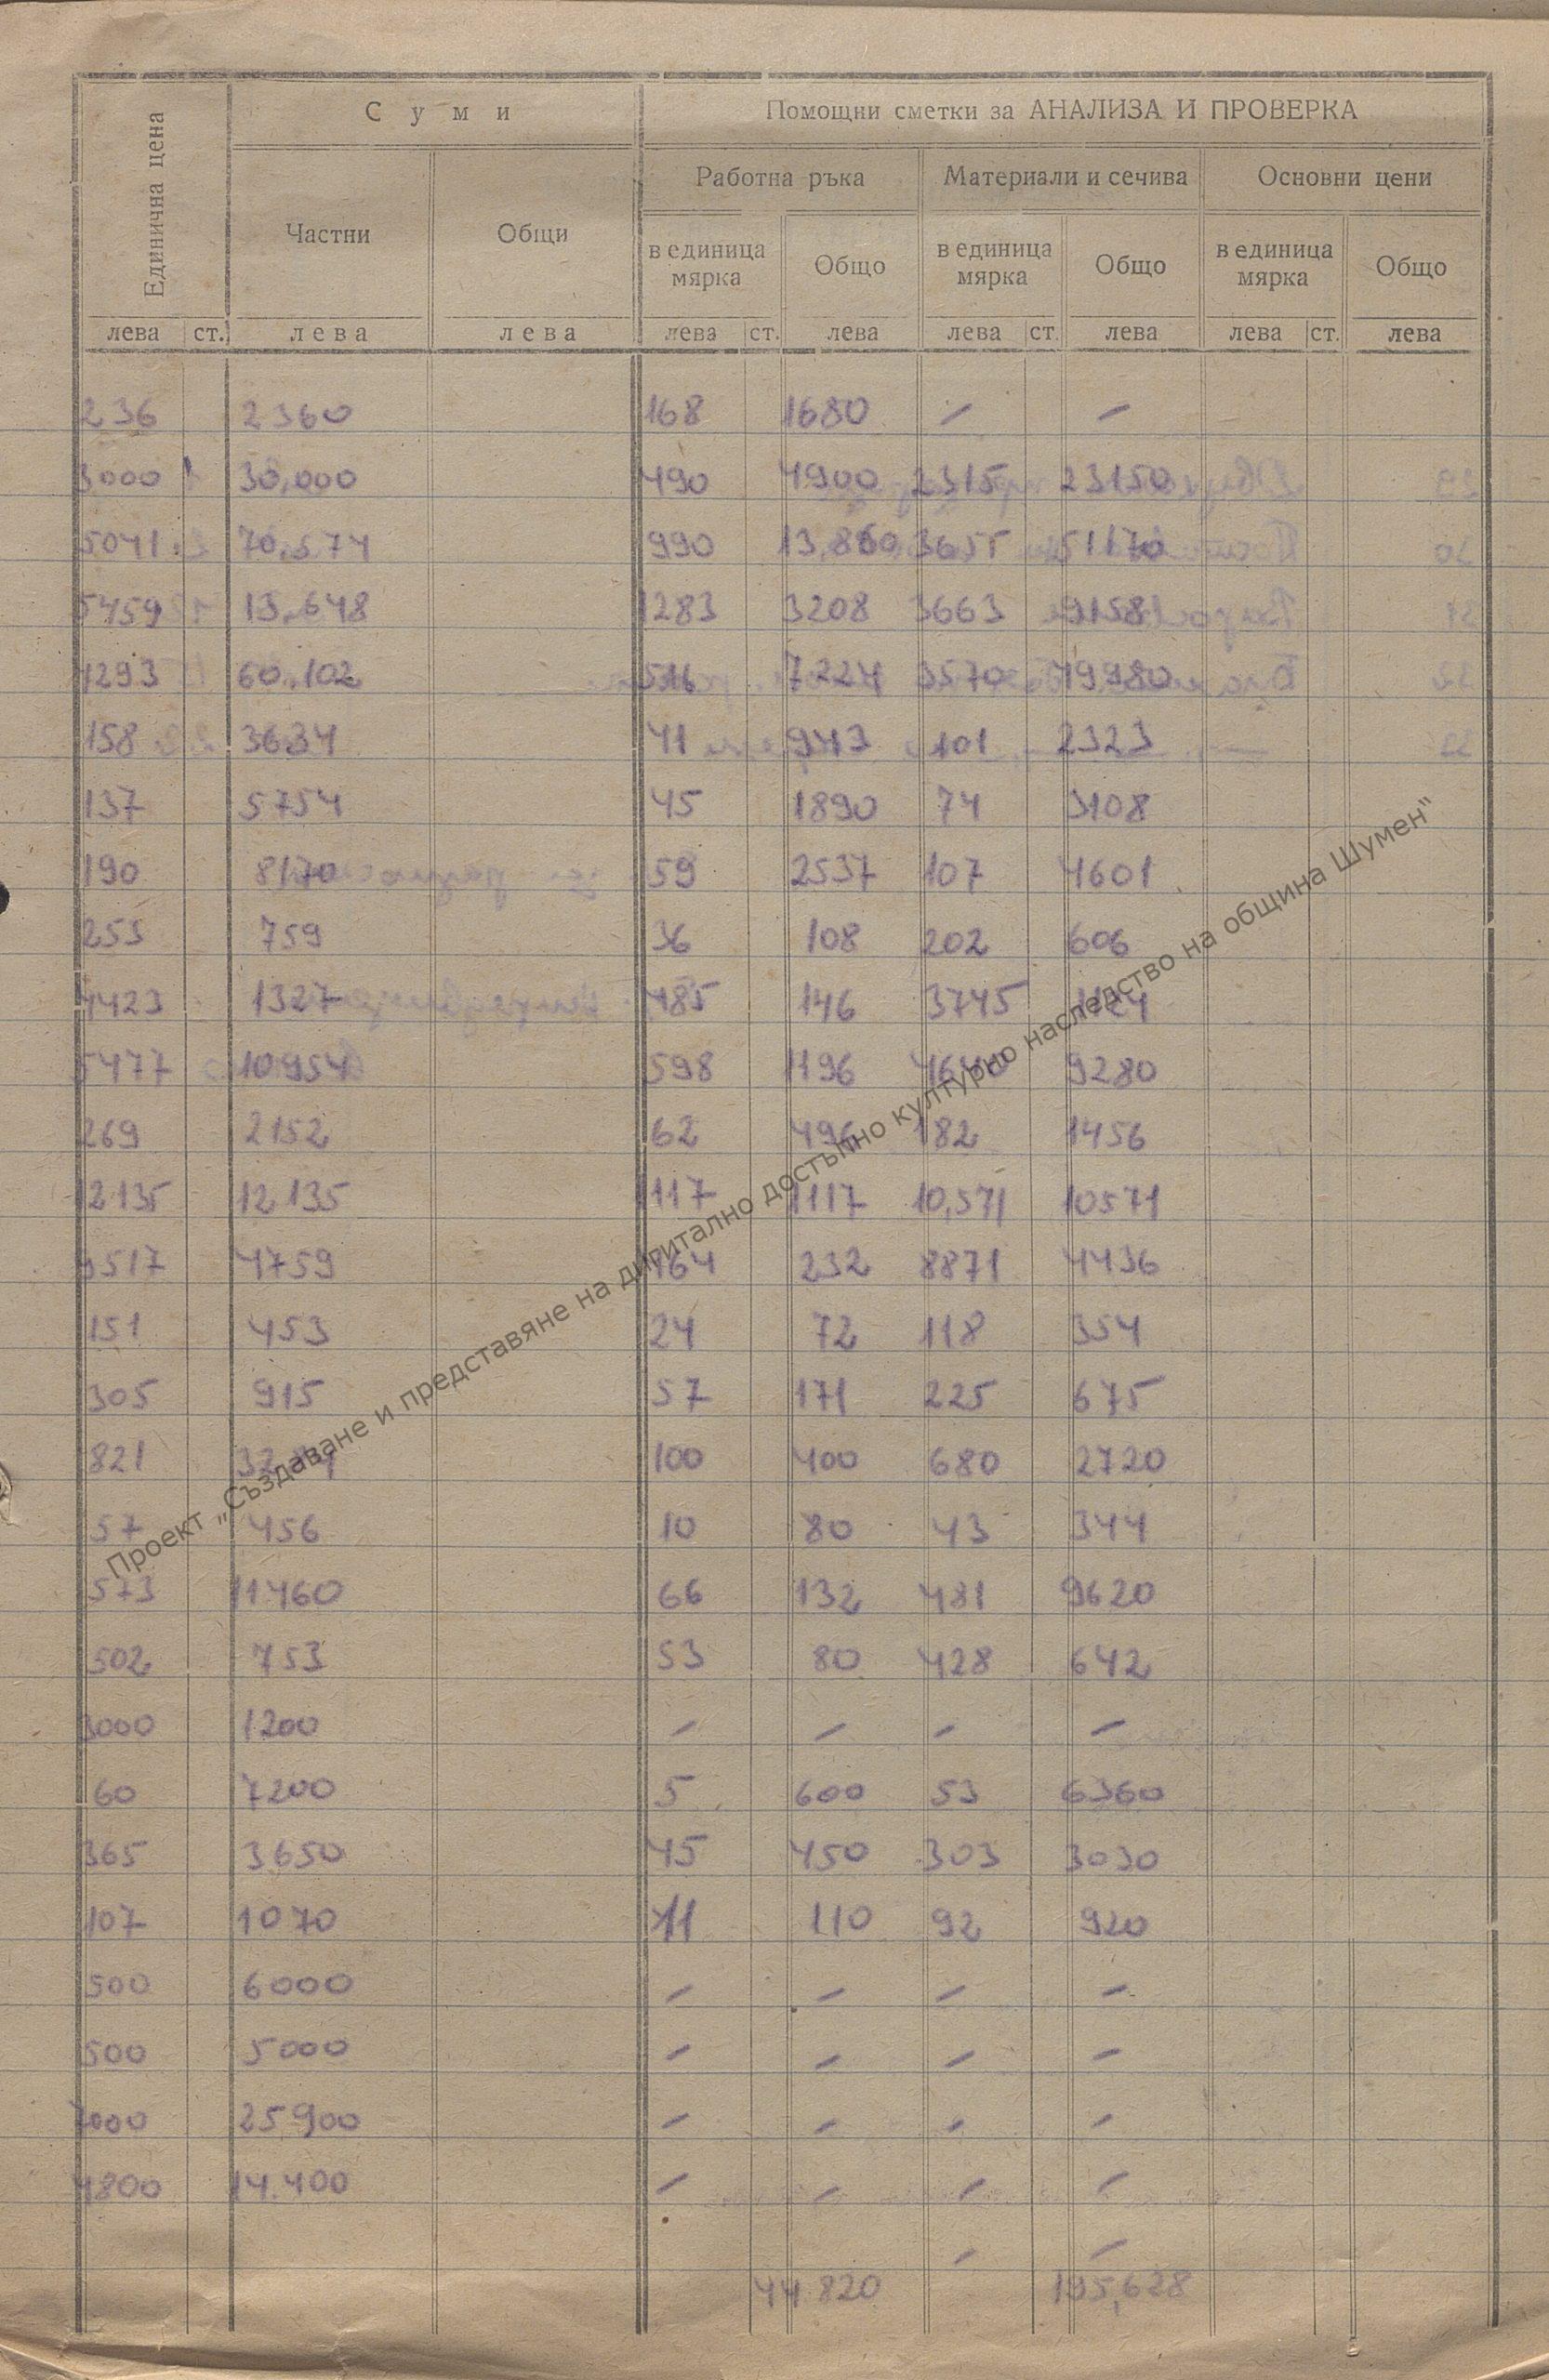 Суми
Помощни сметки за АНАЛИЗА И ПРОВЕРКА
Единична цена
Работна ръка Материали и сечива Основни цени
Частни Общи
в единица мярка Общо в единица мярка Общо в единица мярка Общо
лева ст. лева лева лева ст. лева лева ст. лева лева ст. лева
236 2360 168 1680 – –
3000 30.000 490 4900 2315 23150
5041 70.574 990 13.860 3655 51170
5459 13.648 1283 3208 3663 9158
4293 60.102 516 7224 3570 49980
158 3634 41 943 101 2323
137 5754 45 1890 74 3108
190 8170 59 2537 107 4601
253 759 36 108 202 606
4423 1327 485 146 3745 1124
5477 10954 598 1196 4640 9280
269 2152 62 496 182 1456
12135 12135 1117 1117 10,571 10571
9517 4759 464 232 8871 4436
151 453 24 72 118 354
305 915 57 171 225 675
821 3284 100 400 680 2720
57 456 10 80 43 344
573 11460 66 132 481 9620
502 753 53 80 428 642
3000 1200 – – – –
60 7200 5 600 53 6360
365 3650 45 450 303 3030
107 1070 11 110 92 920
500 6000 – – – –
500 5000 – – – –
7000 25900 – – – –
4800 14.400 – – – –
– –
44.820 195,628
Проект „Създаване и представяне на дигитално достъпно културно наследство на община Шумен"